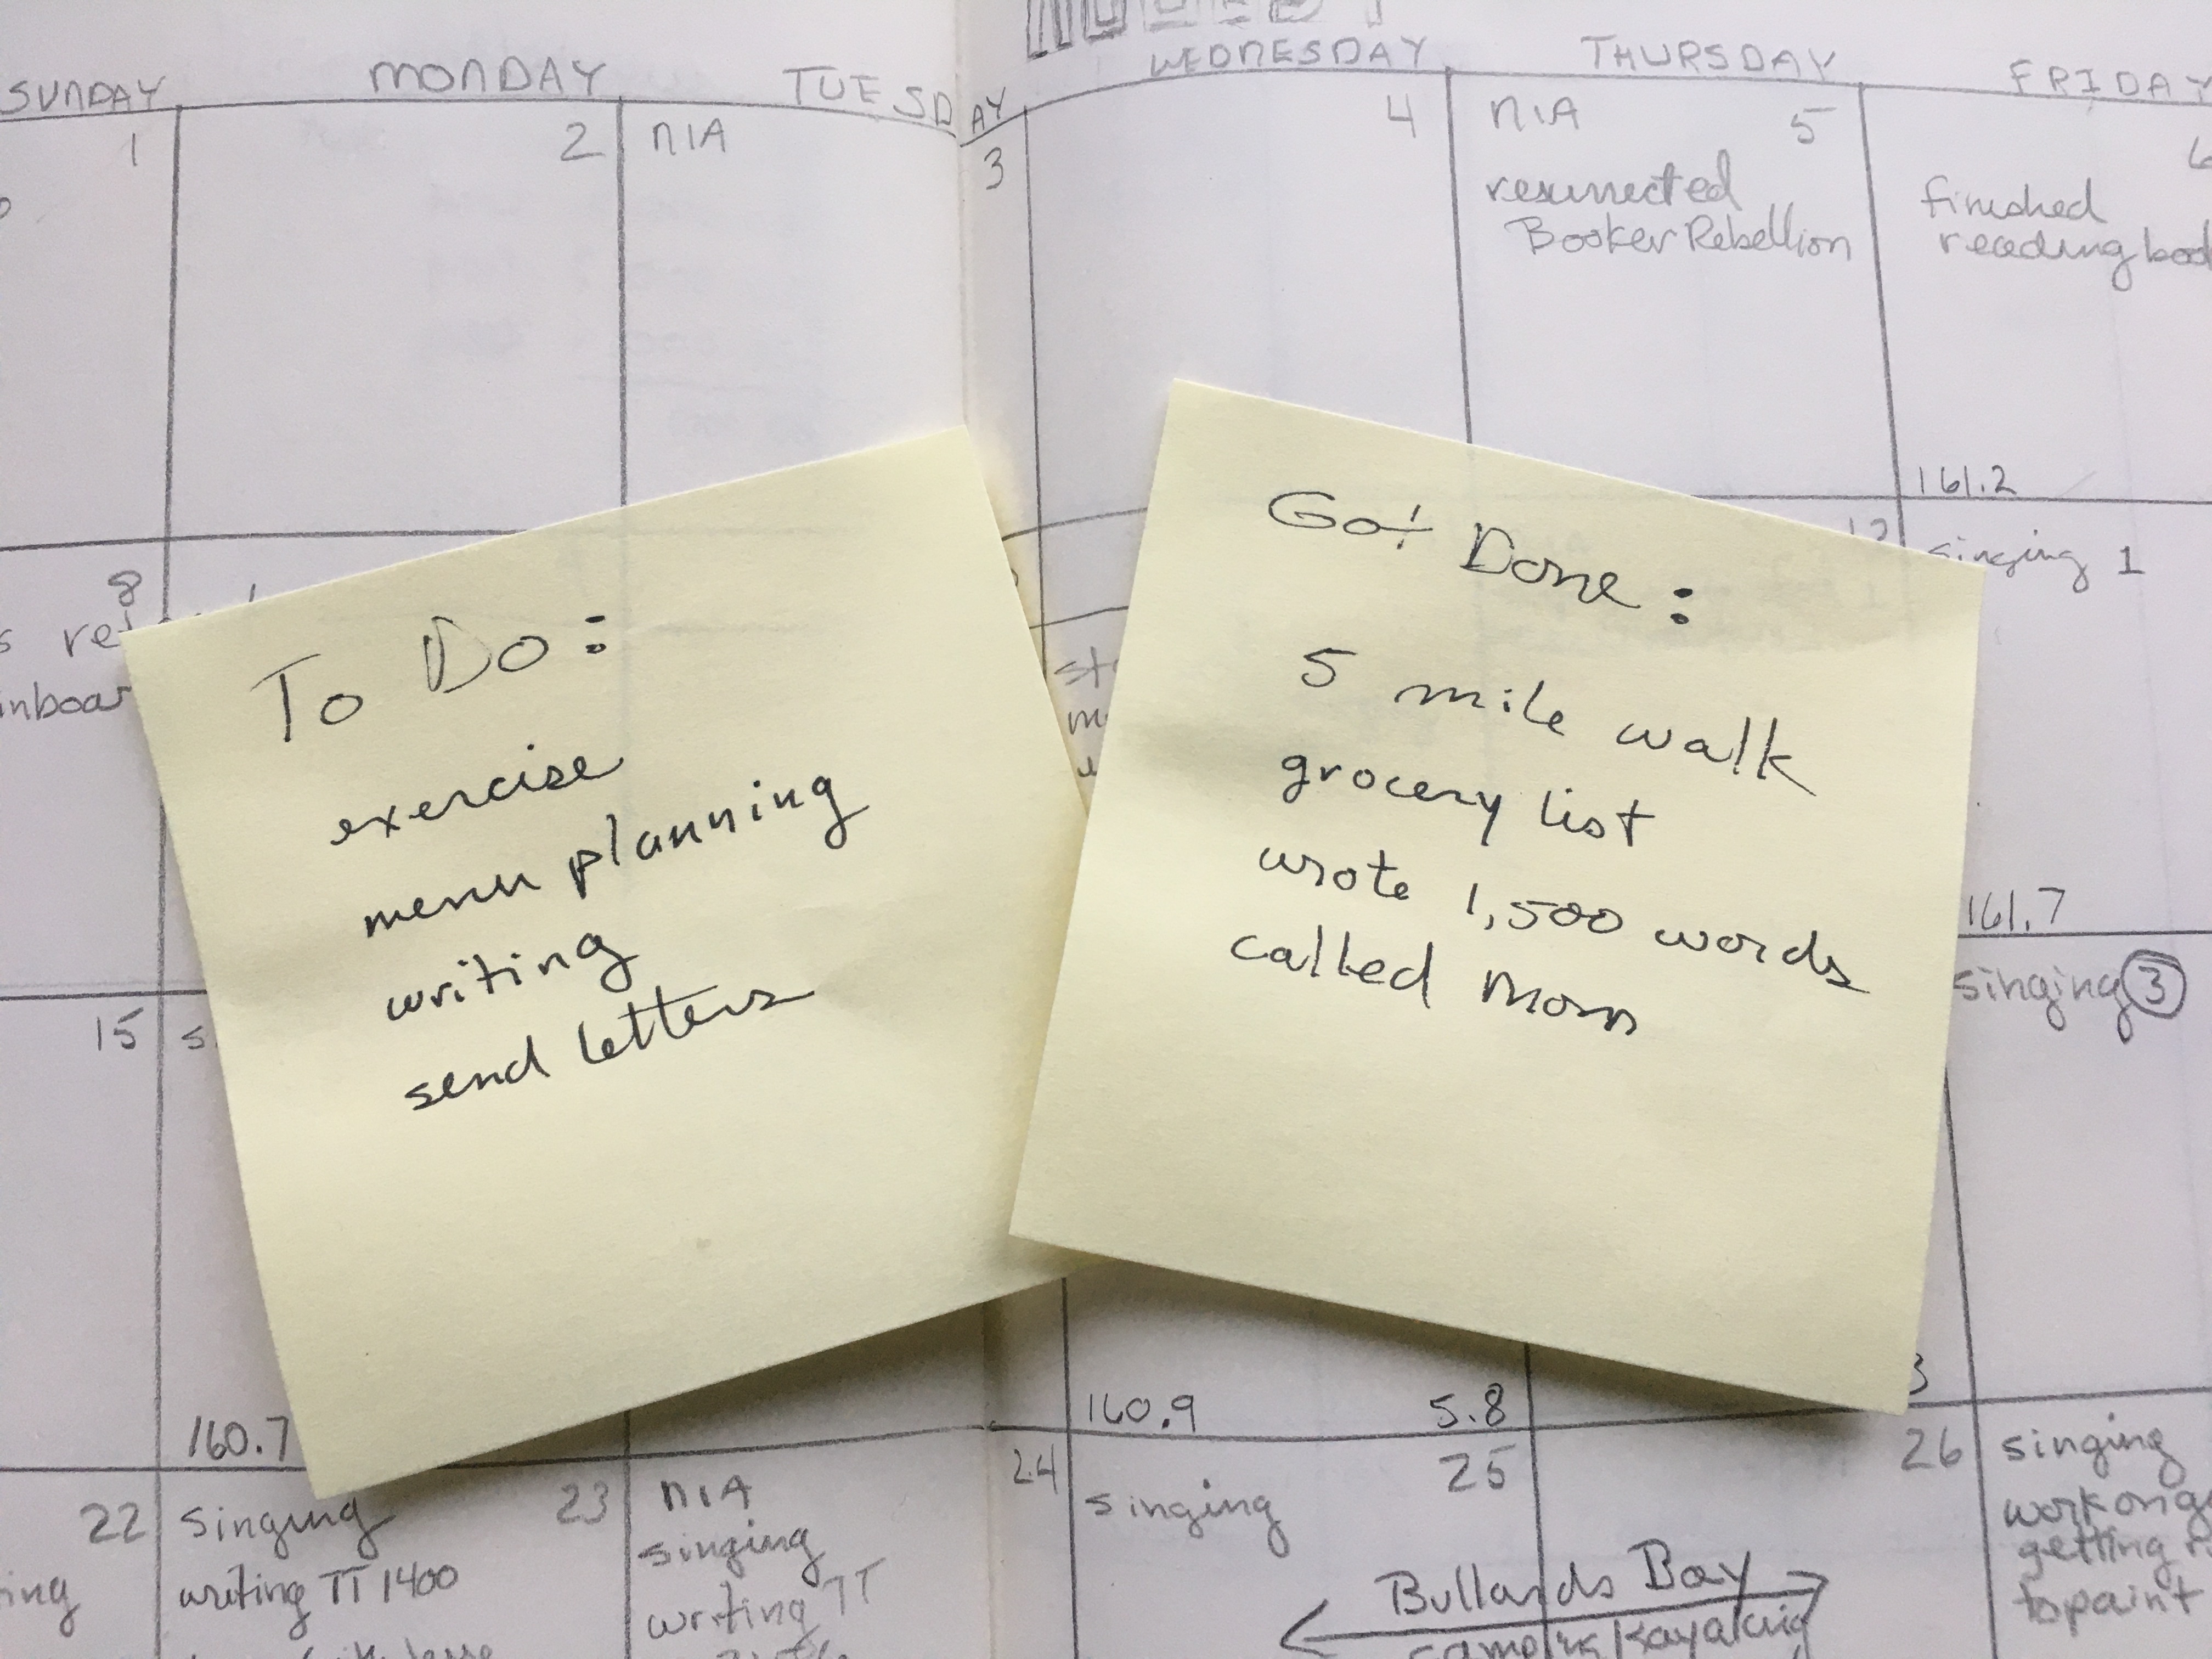 SUNDAY MONDAY TUESDAY WEDNESDAY THURSDAY FRIDAY
1 2 NIA 3 4 NIA 5 6
resurrected
Booker Rebellion
finished
reading
161.2
8
singing 1
To Do:
exercise
menu planning
writing
send letters
Got Done:
5 mile walk
grocery list
wrote 1,500 words
called Mom
161.7
15
singing 3
160.7
160.9 5.8
22 singing 23 NIA 24 singing 25 26 singing
writing TT 1400
singing
writing TT
Bullards Bay
camping kayaking
work on
getting
to paint